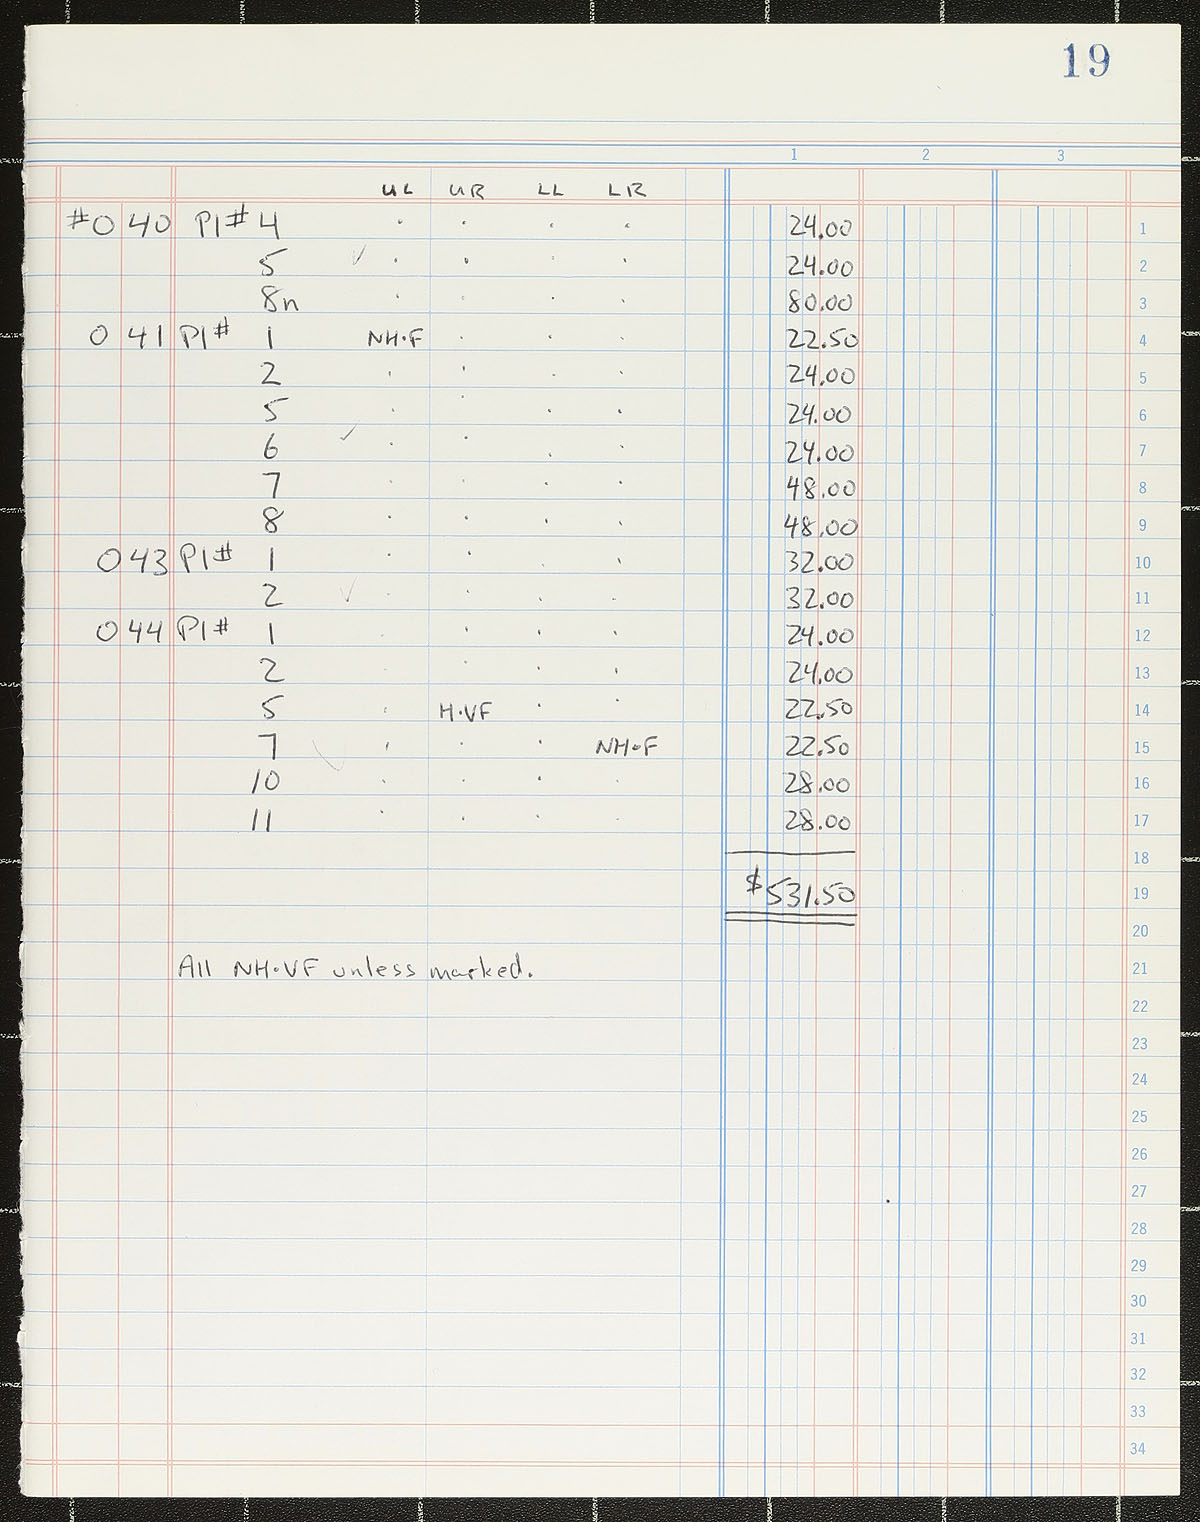 19
1 2 3
UL UR LL LR
#0 40 Pl# 4 · · · · 24.00 1
5 ✓ · · · · 24.00 2
8n · · · · 80.00 3
0 41 Pl# 1 NH·F · · · 22.50 4
2 · · · · 24.00 5
5 · · · · 24.00 6
6 ✓ · · · · 24.00 7
7 · · · · 48.00 8
8 · · · · 48.00 9
0 43 Pl# 1 · · · · 32.00 10
2 ✓ · · · · 32.00 11
0 44 Pl# 1 · · · · 24.00 12
2 · · · · 24.00 13
5 · H·VF · · 22.50 14
7 ✓ · · · NH·F 22.50 15
10 · · · · 28.00 16
11 · · · · 28.00 17
18
$531.50 19
20
All NH·VF unless marked. 21
22
23
24
25
26
27
28
29
30
31
32
33
34